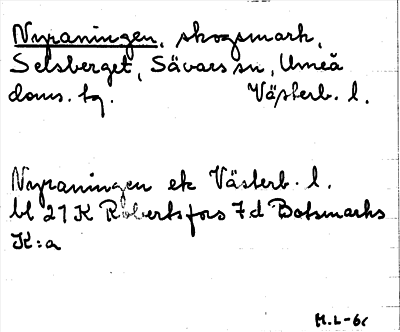 Nyraningen, skogsmark,
Selsberget, Sävars sn, Umeå
doms. tg. Västerb. l.
Nyraningen ek Västerb. l.
bl 21 K Robertsfors 7d Botsmarks
K:a
M.L-61